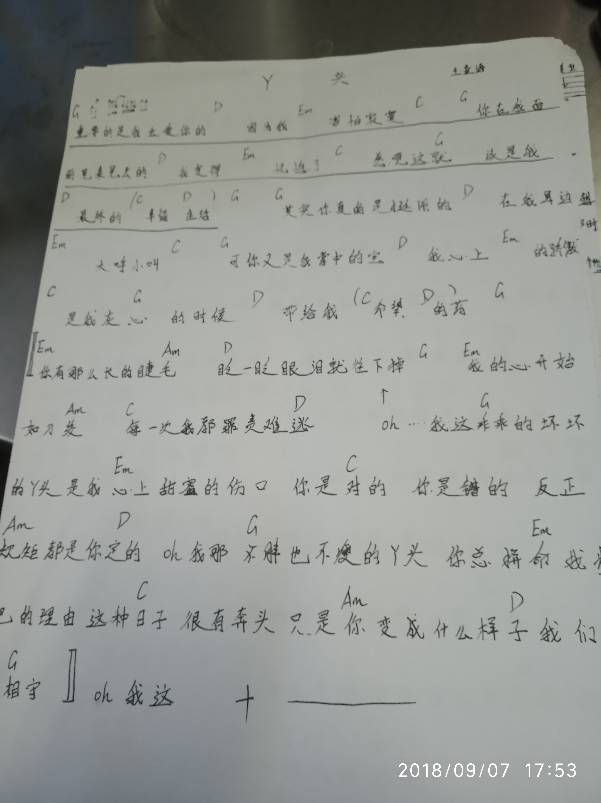 丫 头 王童语
G D Em C G
重要的是我太爱你的 因为我 害怕寂寞 你在我面
D Em C G
前晃来晃去的 我觉得 这就 这是我
D (C D) G G D
最终的 幸福 其实你真的是挺闹的 在我耳边
Em C G D Em
大呼小叫 可你又是我掌中的宝 我心上 的骄傲
C G D (C D) G
是我灰心 的时候 带给我 希望 的药
Em Am D G Em
你有那么长的睫毛 眨一眨眼泪就往下掉 我的心开始
Am C D ↑ G
如刀绞 每一次我都罪责难逃 oh … 我这乖乖的坏坏
Em C
的丫头 是我心上甜蜜的伤口 你是对的 你是错的 反正
Am D G Em
规矩都是你定的 oh 我那不胖也不瘦的丫头 你总拼命找
C Am D
的理由 这种日子 很有奔头 只是你变成什么样子 我们
G
相守 oh 我这 +
2018/09/07 17:53